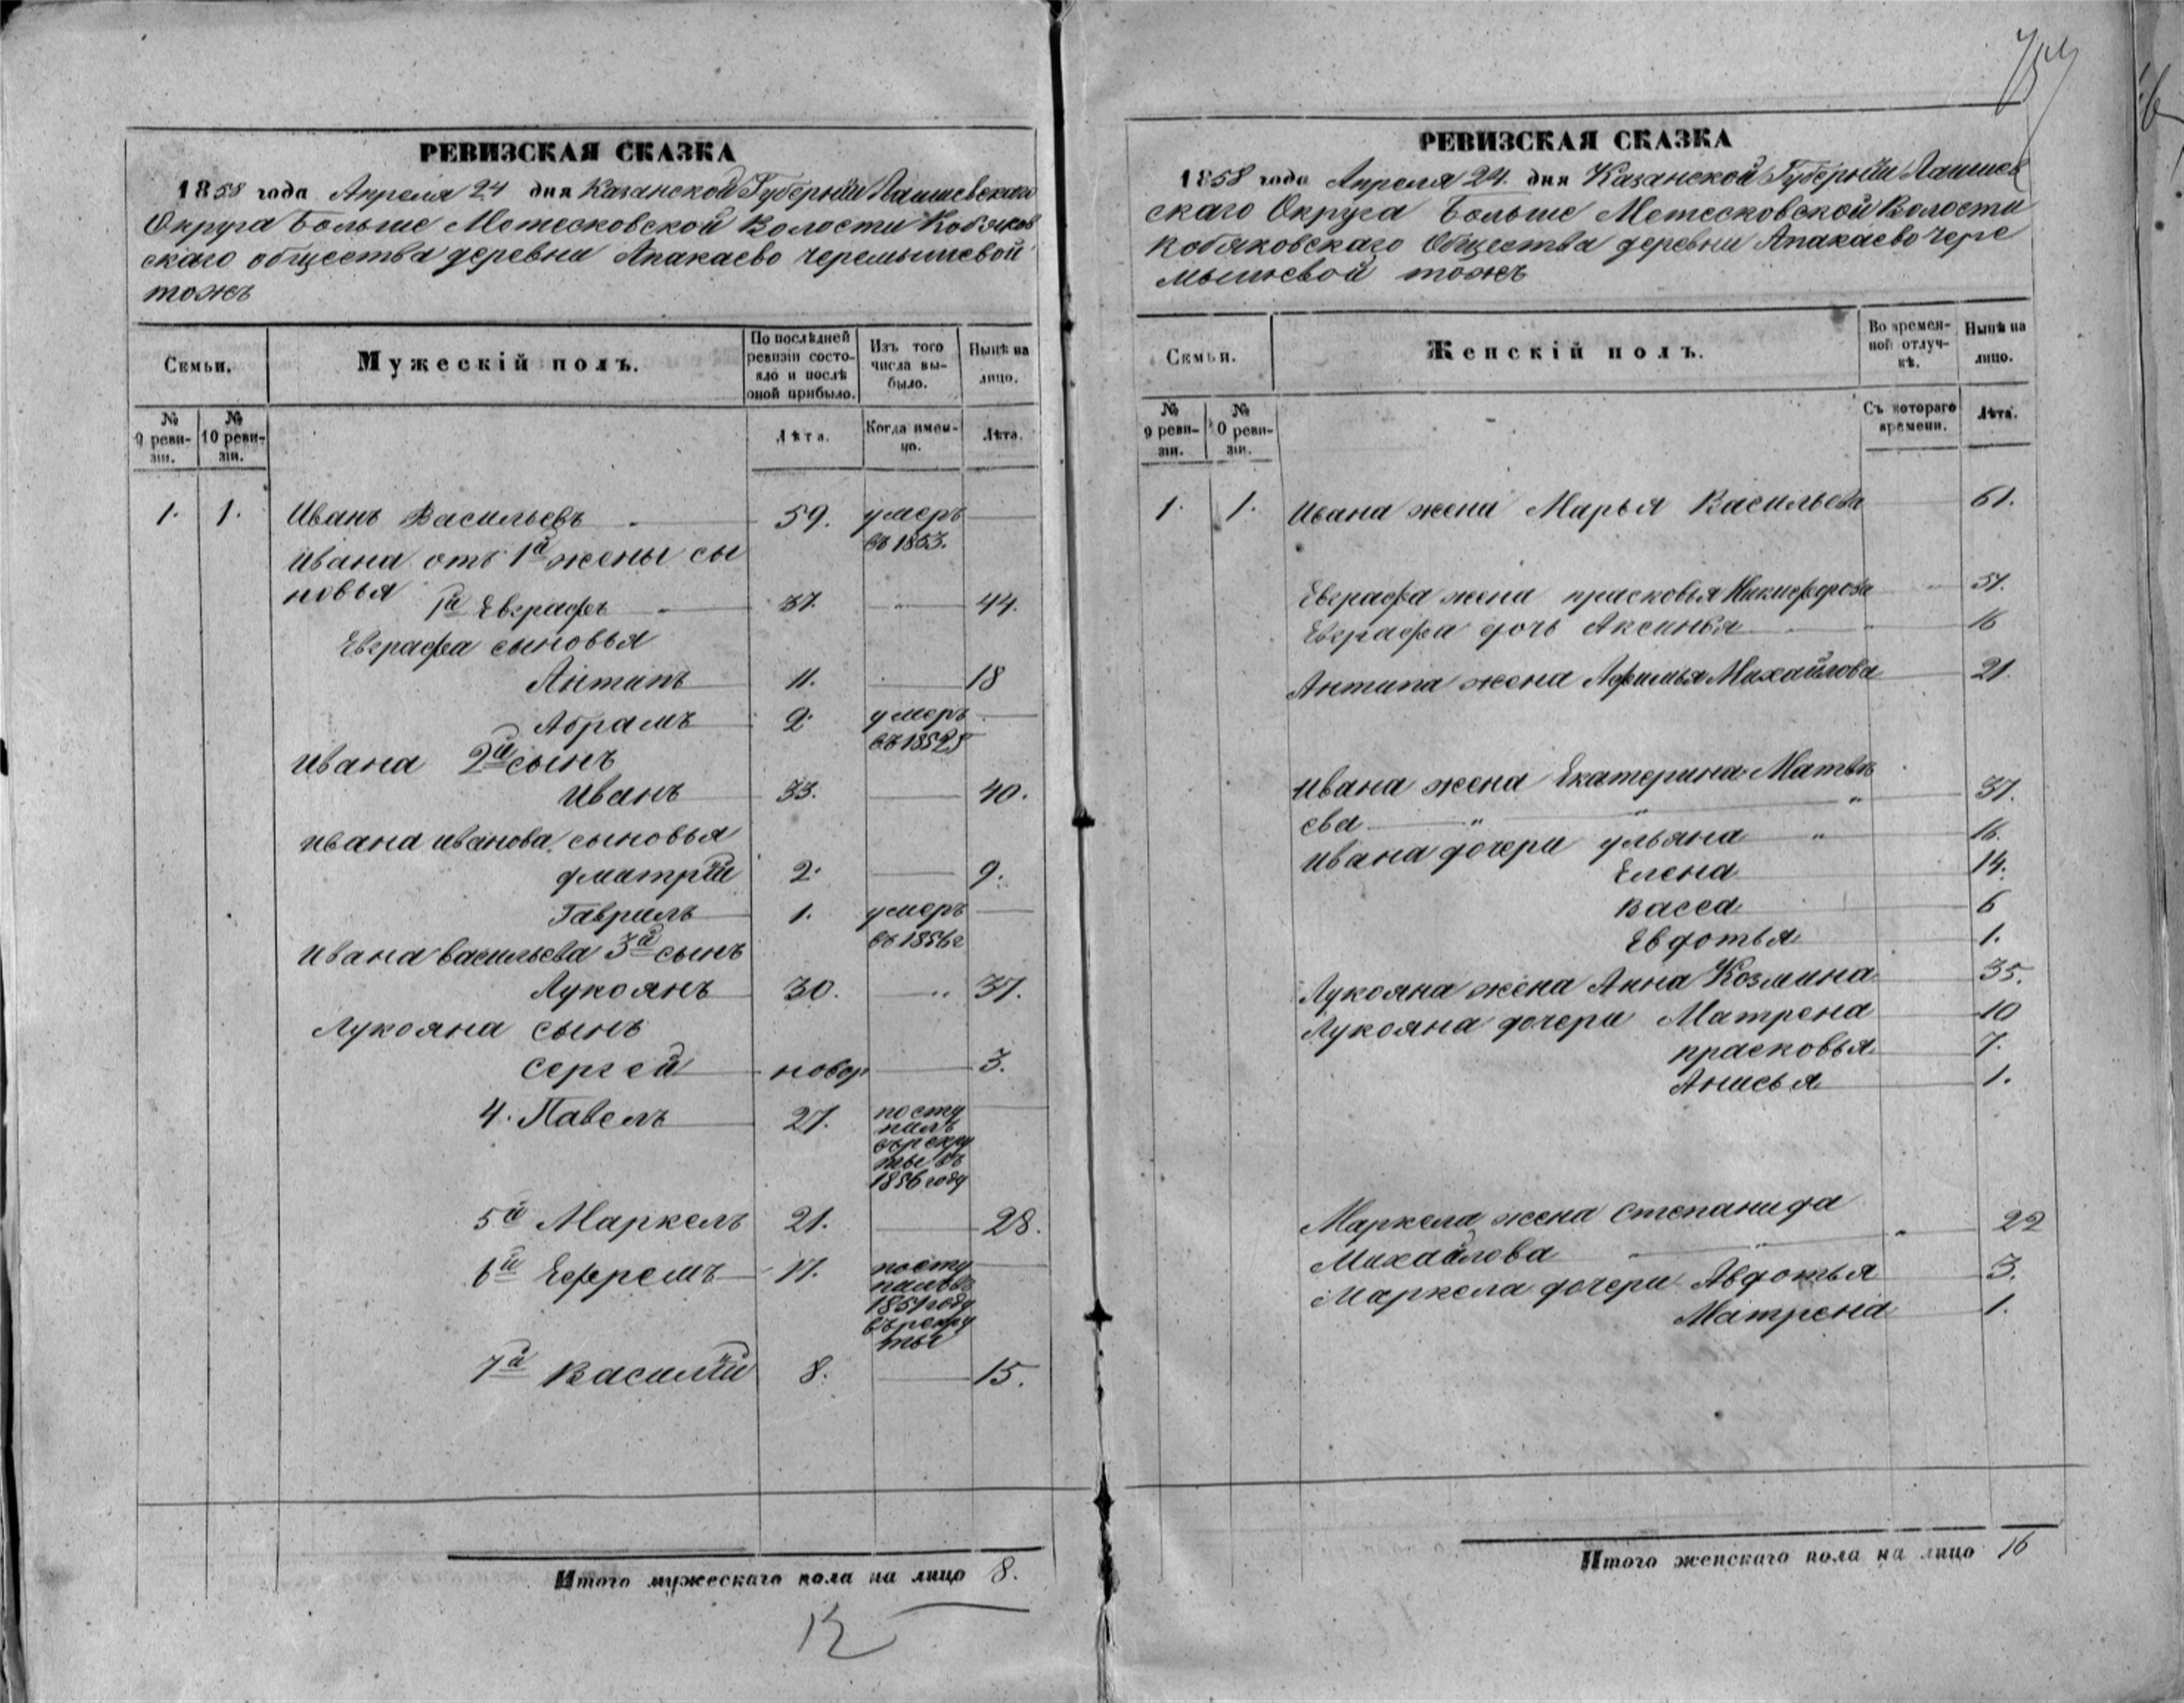 РЕВИЗСКАЯ СКАЗКА
1858 года Апреля 24 дня Казанской Губернiи Лаишевскаго
Округа Больше Метесковской Волости Кобяков
скаго общества деревни Апакаево Черемышевой
тожъ
Семьи.
Мужескій полъ.
По послѣдней ревизіи состояло и послѣ оной прибыло.
Изъ того числа выбыло.
Нынѣ на лицо.
№ 9 ревизіи.
№ 10 ревизіи.
Лѣта.
Когда именно.
Лѣта.
1. 1. Иванъ Васильевъ 59. умеръ
въ 1853.
Ивана отъ 1й жены сы
новья
1й Евграфъ 37. 44.
Евграфа сыновья
Антипъ 11. 18
Абрамъ 2. умеръ
въ 1852
Ивана 2й сынъ
Иванъ 33. 40.
Ивана Иванова сыновья
Дмитрiй 2. 9.
Гаврилъ 1. умеръ
въ 1856г
Ивана Васильева 3й сынъ
Лукоянъ 30. 37.
Лукояна сынъ
Сергей новор 3.
4. Павелъ 27. посту
пилъ
въ рекру
ты въ
1856 году
5й Маркелъ 21. 28.
6й Ефремъ 17. посту
пилъ въ
1851 году
въ рекру
ты
7й Василiй 8. 15.
Итого мужескаго пола на лицо 8.
РЕВИЗСКАЯ СКАЗКА
1858 года Апреля 24. дня Казанской Губернiи Лаишев
скаго Округа Больше Метесковской Волости
Кобяковскаго Общества деревни Апакаево Чере
мышевой тожъ
Семьи.
Женскій полъ.
Во временной отлучкѣ.
Нынѣ на лицо.
№ 9 ревизіи.
№ 10 ревизіи.
Съ котораго времени.
Лѣта.
1. 1. Ивана жена Марья Васильева 61.
Евграфа жена Прасковья Никифорова 51.
Евграфа дочь Аксинья 16
Антипа жена Афимья Михайлова 21.
Ивана жена Екатерина Матвѣ
ева 37.
Ивана дочери Ульяна 16.
Елена 14.
Васса 6
Евдотья 1.
Лукояна жена Анна Козмина 35.
Лукояна дочери Матрена 10
Прасковья 7.
Анисья 1.
Маркела жена Степанида
Михайлова 22
Маркела дочери Авдотья 3.
Матрена 1.
Итого женскаго пола на лицо 16